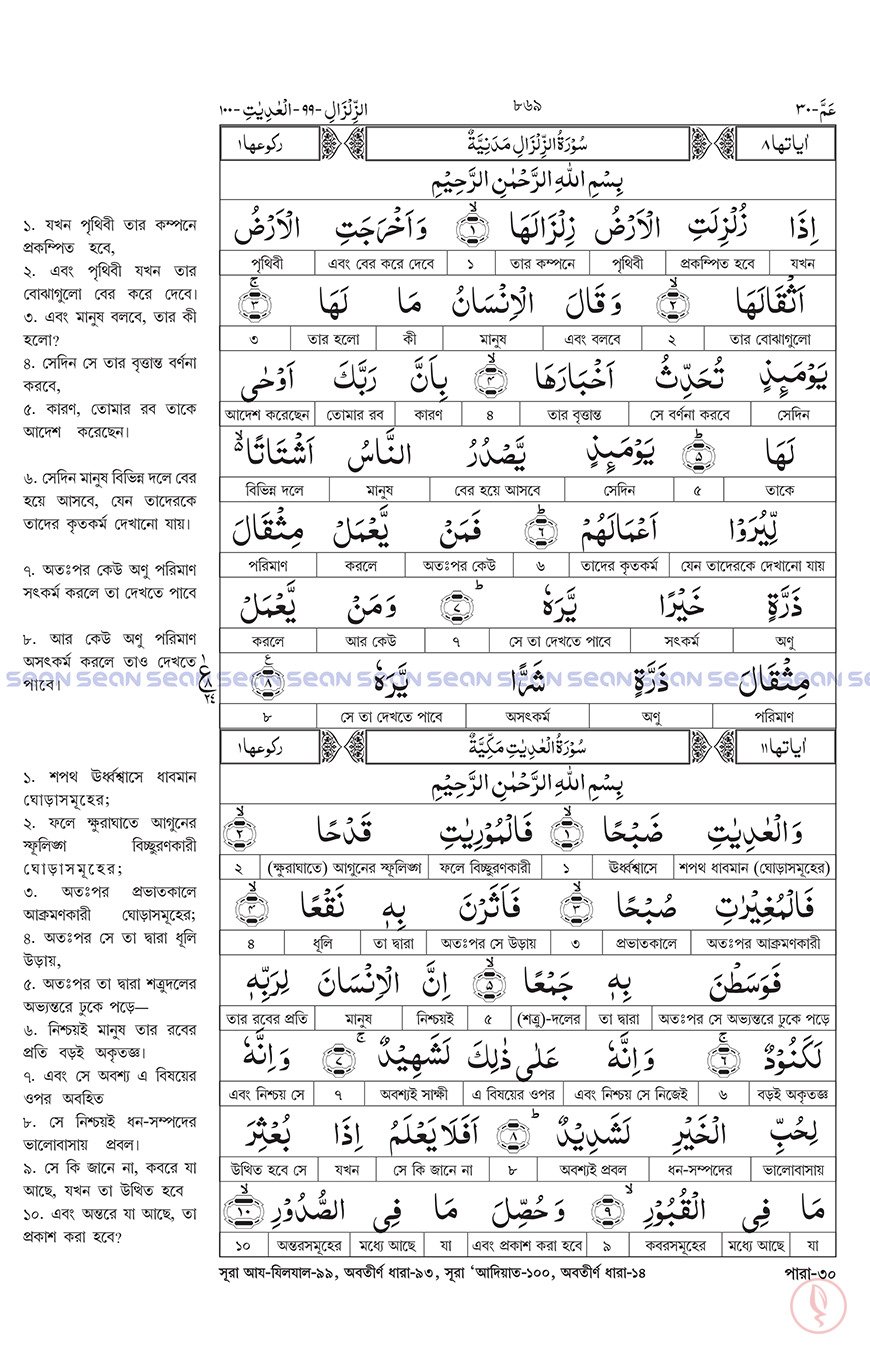 الزِّلْزَالِ -٩٩- الْعٰدِيٰتِ -١٠٠
৮৬৯
عَمَّ -٣٠
اٰیاتها ٨
سُوْرَةُ الزِّلْزَالِ مَدَنِيَّةٌ
ركوعها ١
بِسْمِ اللهِ الرَّحْمٰنِ الرَّحِيْمِ
اِذَا زُلْزِلَتِ الْاَرْضُ زِلْزَالَهَا ۙ﴿١﴾ وَاَخْرَجَتِ الْاَرْضُ
যখন প্রকম্পিত হবে পৃথিবী তার কম্পনে ১ এবং বের করে দেবে পৃথিবী
اَثْقَالَهَا ۙ﴿٢﴾ وَقَالَ الْاِنْسَانُ مَا لَهَا ۚ﴿٣﴾
তার বোঝাগুলো ২ এবং বলবে মানুষ কী তার হলো ৩
يَوْمَئِذٍ تُحَدِّثُ اَخْبَارَهَا ۙ﴿٤﴾ بِاَنَّ رَبَّكَ اَوْحٰى
সেদিন সে বর্ণনা করবে তার বৃত্তান্ত ৪ কারণ তোমার রব আদেশ করেছেন
لَهَا ؕ﴿٥﴾ يَوْمَئِذٍ يَّصْدُرُ النَّاسُ اَشْتَاتًا ۬ۙ
তাকে ৫ সেদিন বের হয়ে আসবে মানুষ বিভিন্ন দলে
لِّيُرَوْا اَعْمَالَهُمْ ؕ﴿٦﴾ فَمَنْ يَّعْمَلْ مِثْقَالَ
যেন তাদেরকে দেখানো যায় তাদের কৃতকর্ম ৬ অতঃপর কেউ করলে পরিমাণ
ذَرَّةٍ خَيْرًا يَّرَهٗ ؕ﴿٧﴾ وَمَنْ يَّعْمَلْ
অণু সৎকর্ম সে তা দেখতে পাবে ৭ আর কেউ করলে
مِثْقَالَ ذَرَّةٍ شَرًّا يَّرَهٗ ﴿٨﴾
পরিমাণ অণু অসৎকর্ম সে তা দেখতে পাবে ৮
১. যখন পৃথিবী তার কম্পনে
প্রকম্পিত হবে,
২. এবং পৃথিবী যখন তার
বোঝাগুলো বের করে দেবে।
৩. এবং মানুষ বলবে, তার কী
হলো?
৪. সেদিন সে তার বৃত্তান্ত বর্ণনা
করবে,
৫. কারণ, তোমার রব তাকে
আদেশ করেছেন।
৬. সেদিন মানুষ বিভিন্ন দলে বের
হয়ে আসবে, যেন তাদেরকে
তাদের কৃতকর্ম দেখানো যায়।
৭. অতঃপর কেউ অণু পরিমাণ
সৎকর্ম করলে তা দেখতে পাবে
৮. আর কেউ অণু পরিমাণ
অসৎকর্ম করলে তাও দেখতে
পাবে।
sean sean sean sean sean sean sean sean sean sean sean sean
اٰیاتها ١١
سُوْرَةُ الْعٰدِيٰتِ مَكِّيَّةٌ
ركوعها ١
بِسْمِ اللهِ الرَّحْمٰنِ الرَّحِيْمِ
وَالْعٰدِيٰتِ ضَبْحًا ۙ﴿١﴾ فَالْمُوْرِيٰتِ قَدْحًا ۙ﴿٢﴾
শপথ ধাবমান (ঘোড়াসমূহের) ঊর্ধ্বশ্বাসে ১ ফলে বিচ্ছুরণকারী (ক্ষুরাঘাতে) আগুনের স্ফুলিঙ্গ ২
فَالْمُغِيْرٰتِ صُبْحًا ۙ﴿٣﴾ فَاَثَرْنَ بِهٖ نَقْعًا ۙ﴿٤﴾
অতঃপর আক্রমণকারী প্রভাতকালে ৩ অতঃপর সে উড়ায় তা দ্বারা ধূলি ৪
فَوَسَطْنَ بِهٖ جَمْعًا ۙ﴿٥﴾ اِنَّ الْاِنْسَانَ لِرَبِّهٖ
অতঃপর সে অভ্যন্তরে ঢুকে পড়ে তা দ্বারা (শত্রু)-দলের ৫ নিশ্চয়ই মানুষ তার রবের প্রতি
لَكَنُوْدٌ ۚ﴿٦﴾ وَاِنَّهٗ عَلٰى ذٰلِكَ لَشَهِيْدٌ ۚ﴿٧﴾ وَاِنَّهٗ
বড়ই অকৃতজ্ঞ ৬ এবং নিশ্চয় সে নিজেই এ বিষয়ের ওপর অবশ্যই সাক্ষী ৭ এবং নিশ্চয় সে
لِحُبِّ الْخَيْرِ لَشَدِيْدٌ ؕ﴿٨﴾ اَفَلَا يَعْلَمُ اِذَا بُعْثِرَ
ভালোবাসায় ধন-সম্পদের অবশ্যই প্রবল ৮ সে কি জানে না যখন উত্থিত হবে সে
مَا فِي الْقُبُوْرِ ۙ﴿٩﴾ وَحُصِّلَ مَا فِي الصُّدُوْرِ ۙ﴿١٠﴾
যা মধ্যে আছে কবরসমূহের ৯ এবং প্রকাশ করা হবে যা মধ্যে আছে অন্তরসমূহের ১০
১. শপথ ঊর্ধ্বশ্বাসে ধাবমান
ঘোড়াসমূহের;
২. ফলে ক্ষুরাঘাতে আগুনের
স্ফূলিঙ্গ বিচ্ছুরণকারী
ঘোড়াসমূহের;
৩. অতঃপর প্রভাতকালে
আক্রমণকারী ঘোড়াসমূহের;
৪. অতঃপর সে তা দ্বারা ধূলি
উড়ায়,
৫. অতঃপর তা দ্বারা শত্রুদলের
অভ্যন্তরে ঢুকে পড়ে—
৬. নিশ্চয়ই মানুষ তার রবের
প্রতি বড়ই অকৃতজ্ঞ।
৭. এবং সে অবশ্য এ বিষয়ের
ওপর অবহিত
৮. সে নিশ্চয়ই ধন-সম্পদের
ভালোবাসায় প্রবল।
৯. সে কি জানে না, কবরে যা
আছে, যখন তা উত্থিত হবে
১০. এবং অন্তরে যা আছে, তা
প্রকাশ করা হবে?
সূরা আয-যিলযাল-৯৯, অবতীর্ণ ধারা-৯৩, সূরা ‘আদিয়াত-১০০, অবতীর্ণ ধারা-১৪
পারা-৩০